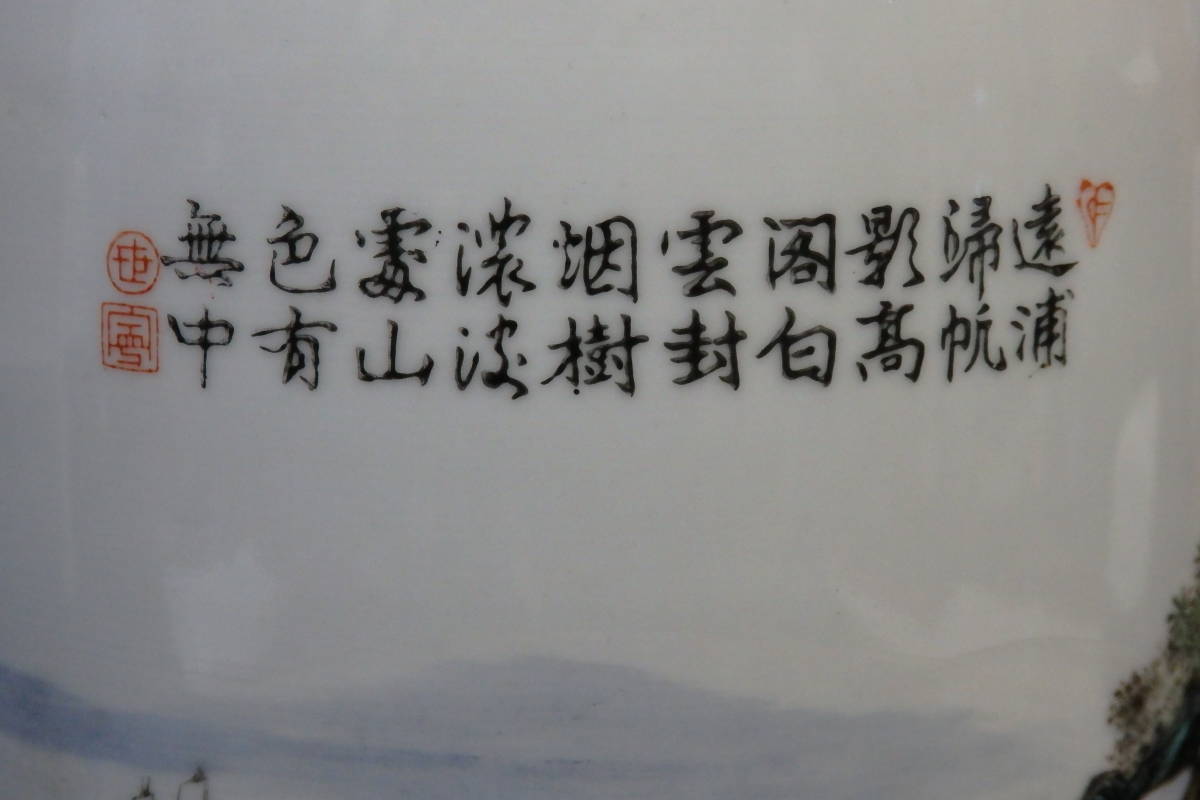 遠浦
歸帆
影高
阁白
雲封
烟樹
濃淡
處山
色有
無中